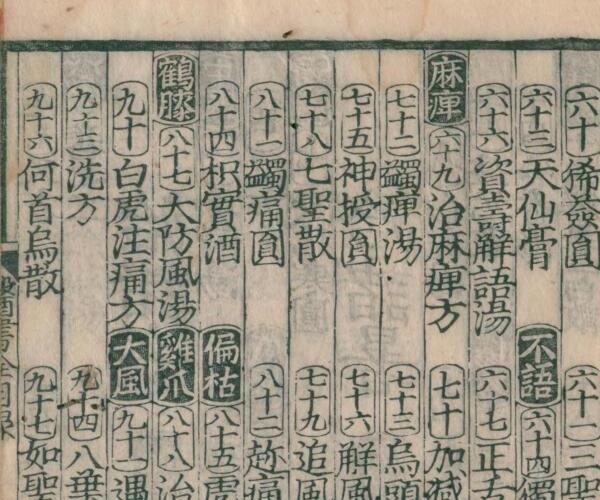 六十 豨薟圓 六十二 三聖
六十三 天仙膏 不語 六十四
六十六 資壽解語湯 六十七 正舌
麻痺 六十九 治麻痺方 七十 加減
七十二 蠲痺湯 七十三 烏頭
七十五 神授圓 七十六 解風
七十八 七聖散 七十九 追風
八十一 蠲痛圓 八十二 趂痛
八十四 枳實酒 偏枯 八十五 虎
鶴膝 八十七 大防風湯 雞爪 八十八 治
九十 白虎注痛方 大風 九十一 遇
九十三 洗方 九十四 八
九十六 何首烏散 九十七 如聖